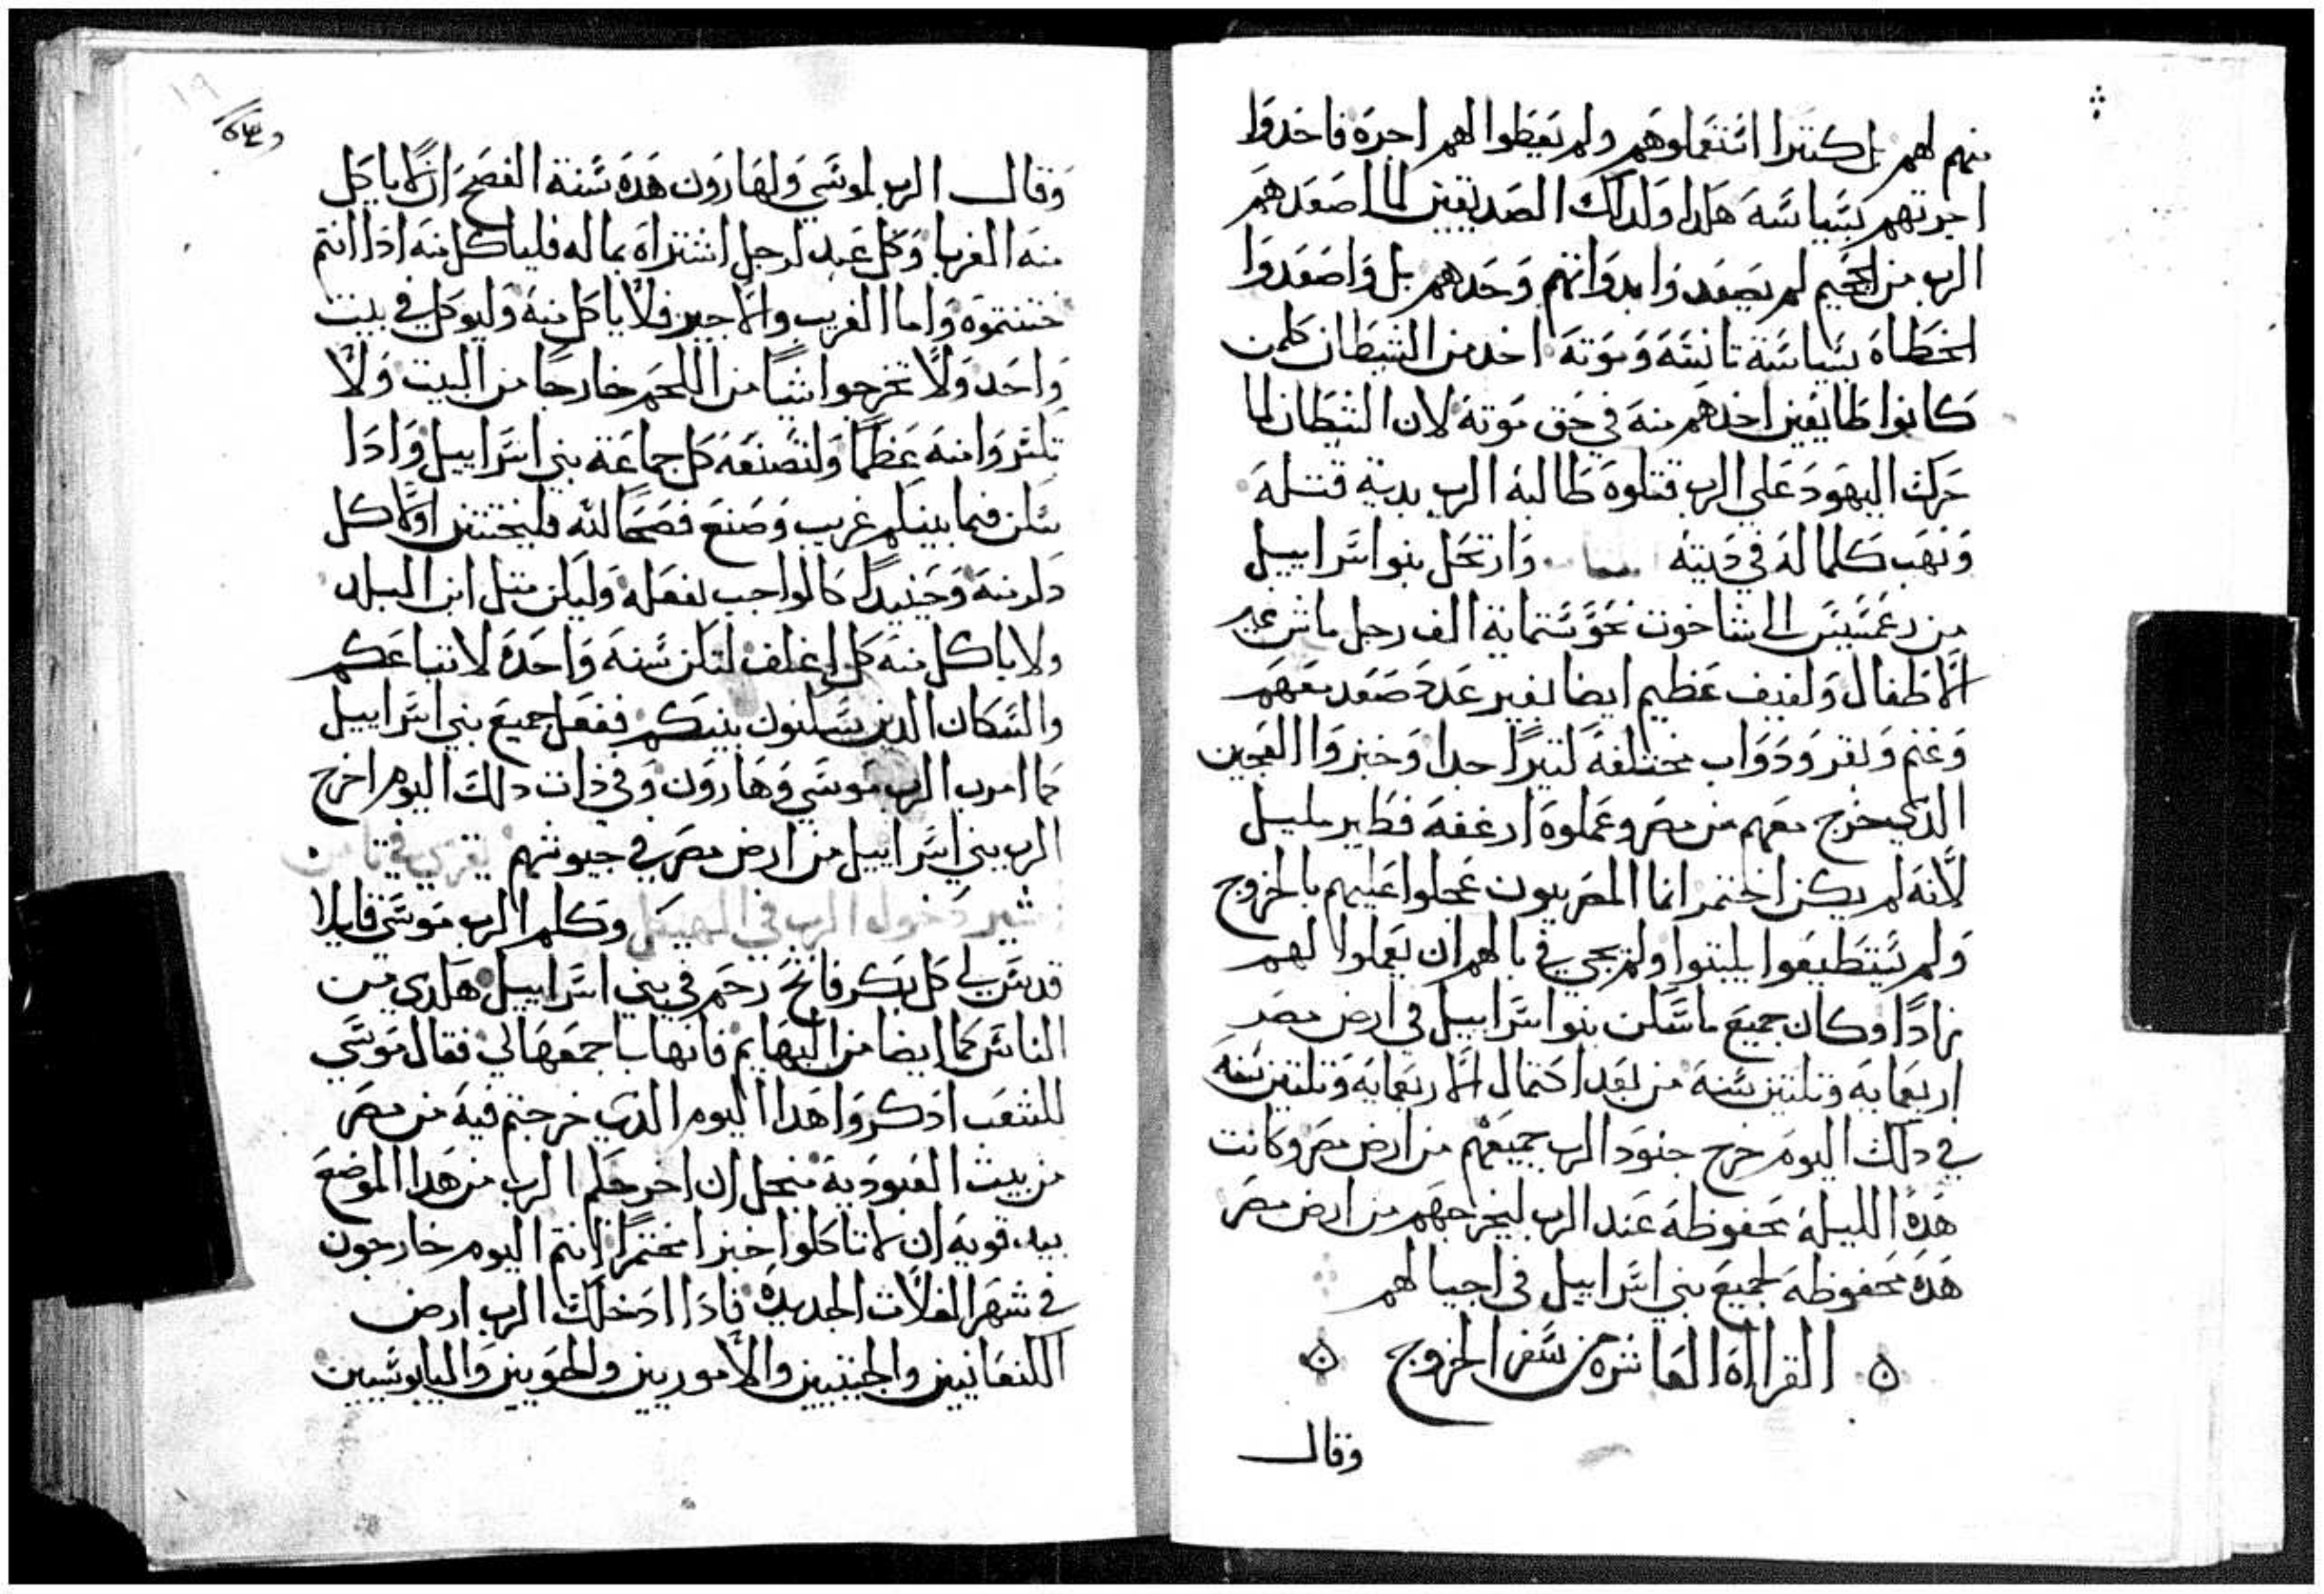 منهم لهم بل كتيرا استعملوهم ولم يعطوا لهم اجرة فاخدوا
اجرتهم بسياسة هكدا ولدلك الصديقين لما اصعدهم
الرب من الجحيم لم يصعدوا بدواتهم وحدهم بل واصعدوا
الخطاه بسياسة تانسه وموته اخد من الشيطان كلمن
كانوا طايعين اخدهم منه في حق موته لان الشيطان لما
حرك اليهود على الرب قتلوه طالبه الرب بدية قتله
ونهب كلما له في ديته وارتحل بنوا اسراييل
من رعمسيس الى ساخوت نحو ستماية الف رجل ماش غير
الاطفال ولفيف عظيم ايضا بغير عدد صعد معهم
وغنم وبقر ودواب مختلفة كتيرا جدا وخبزوا العجين
الذي خرج معهم من مصر وعملوه ارغفة فطير مليل
لانه لم يكن اختمر انما المصريون عجلوا عليهم بالخروج
ولم يستطيعوا يلبتوا ولم يجي في بالهم ان يعملوا لهم
زادا وكان جميع ما سكن بنوا اسراييل في ارض مصر
اربعماية وتلتين سنة من بعد احتمال الاربعماية وتلتين سنة
في دلك اليوم خرج جنود الرب جميعهم من ارض مصر وكانت
هذه الليلة محفوظة عند الرب ليخرجهم من ارض مصر
هده محفوظة لجميع بني اسراييل في اجيالهم
القراة العاشره من سفر الخروج
وقال
وقال الرب لموسى ولهارون هده سنة الفصح ان لا ياكل
منه الغربا وكل عبد لرجل اشتراه بماله فلياكل منه ادا انتم
ختنتموه واما الغريب والاجير فلا ياكل منه وليوكل في بيت
واحد ولا تخرجوا شيا من اللحم خارجا من البيت ولا
تكسروا منه عظما ولتصنعه كل جماعة بني اسراييل وادا
سكن فيما بينكم غريب وصنع فصحا لله فليختتن اولا كل
دكر منه وحينيد كالواجب يفعله وليكن متل ابن البلد
ولا ياكل منه كل اغلف لتكن سنة واحدة لاتباعكم
والسكان الدين يسكنون بينكم ففعل جميع بني اسراييل
كما امر به الرب موسى وهارون وفي ذات دلك اليوم اخرج
الرب بني اسراييل من ارض مصر في جيوشهم يقرى في تامن
شهر دخول الرب في الهيكل وكلم الرب موسى قايلا
قدس لي كل بكر فاتح رحم في بني اسراييل هكدي من
الناس كما ايضا من البهايم فانها باجمعها لي فقال موسى
للشعب ادكروا هدا اليوم الدي خرجتم فيه من مصر
من بيت العبودية منجل ان اخرجكم الرب من هدا الموضع
بيد قوية ان لا تاكلوا خبزا مختمرا انتم اليوم خارجون
في شهر الغلات الجديده فادا ادخلك الرب ارض
الكنعانيين والحيتيين والاموريين والحويين واليابوسيين